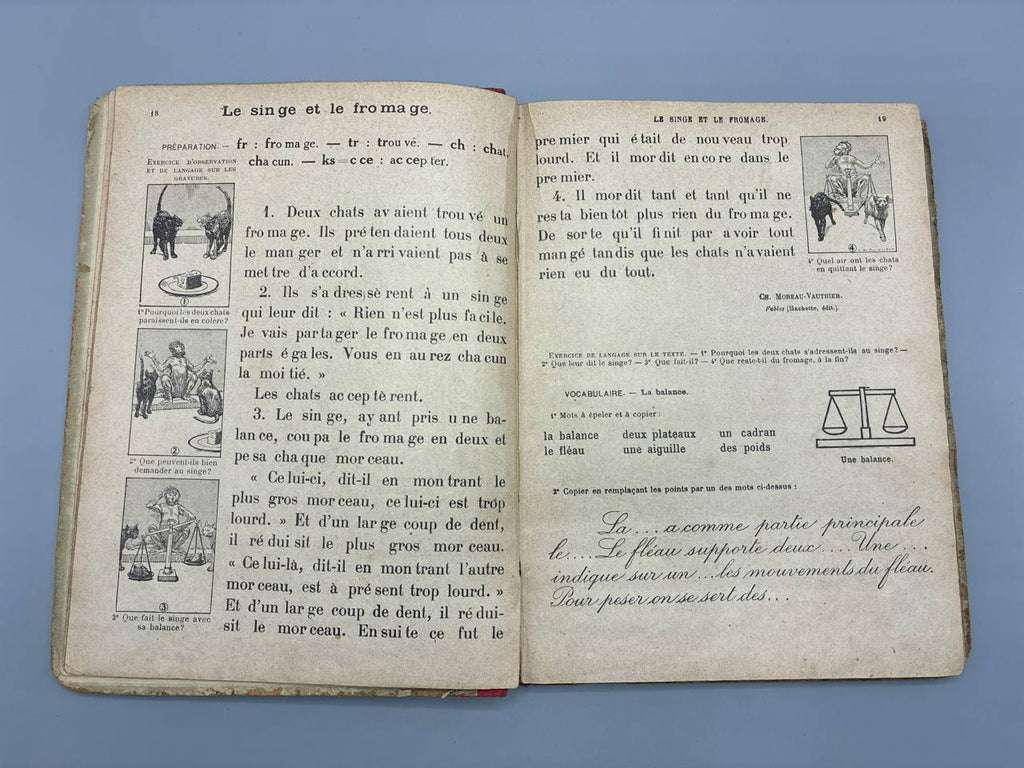 18
Le sin ge et le fro ma ge.
PRÉPARATION. — fr : fro ma ge. — tr : trou vé. — ch : chat,
cha cun. — ks = c ce : ac cep ter.
EXERCICE D'OBSERVATION
ET DE LANGAGE SUR LES
GRAVURES.
①
1° Pourquoi les deux chats
paraissent-ils en colère?
②
2° Que peuvent-ils bien
demander au singe?
③
3° Que fait le singe avec
sa balance?
1. Deux chats av aient trou vé un
fro ma ge. Ils pré ten daient tous deux
le man ger et n'a rri vaient pas à se
met tre d'a ccord.
2. Ils s'a dres sè rent à un sin ge
qui leur dit : « Rien n'est plus fa cile.
Je vais par ta ger le fro ma ge en deux
parts é ga les. Vous en au rez cha cun
la moi tié. »
Les chats ac cep tè rent.
3. Le sin ge, ay ant pris u ne ba-
lan ce, cou pa le fro ma ge en deux et
pe sa cha que mor ceau.
« Ce lui-ci, dit-il en mon trant le
plus gros mor ceau, ce lui-ci est trop
lourd. » Et d'un lar ge coup de dent,
il ré dui sit le plus gros mor ceau.
« Ce lui-là, dit-il en mon trant l'autre
mor ceau, est à pré sent trop lourd. »
Et d'un lar ge coup de dent, il ré dui-
sit le mor ceau. En sui te ce fut le
LE SINGE ET LE FROMAGE.
19
pre mier qui é tait de nou veau trop
lourd. Et il mor dit en co re dans le
pre mier.
4. Il mor dit tant et tant qu'il ne
res ta bien tôt plus rien du fro ma ge.
De sor te qu'il fi nit par a voir tout
man gé tan dis que les chats n'avaient
rien eu du tout.
④
4° Quel air ont les chats
en quittant le singe?
CH. MOREAU-VAUTHIER.
Fables (Hachette, édit.).
EXERCICE DE LANGAGE SUR LE TEXTE. — 1° Pourquoi les deux chats s'adressent-ils au singe? —
2° Que leur dit le singe? — 3° Que fait-il? — 4° Que reste-t-il du fromage, à la fin?
VOCABULAIRE. — La balance.
1° Mots à épeler et à copier :
la balance deux plateaux un cadran
le fléau une aiguille des poids
Une balance.
2° Copier en remplaçant les points par un des mots ci-dessus :
La ... a comme partie principale
le .... Le fléau supporte deux .... Une ...
indique sur un ... les mouvements du fléau.
Pour peser on se sert des...